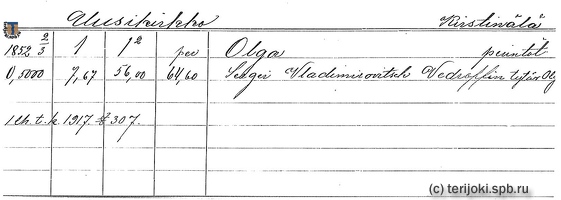 Uusikirkko Kirstinälä
1852 2/3 1 1² per Olga perintöt
0,5000 7,67 56,00 64,60 Sergei Vladimirovitsch Vedroffin tytär Olg
1 th. t. k. 1917. § 307.
(c) terijoki.spb.ru